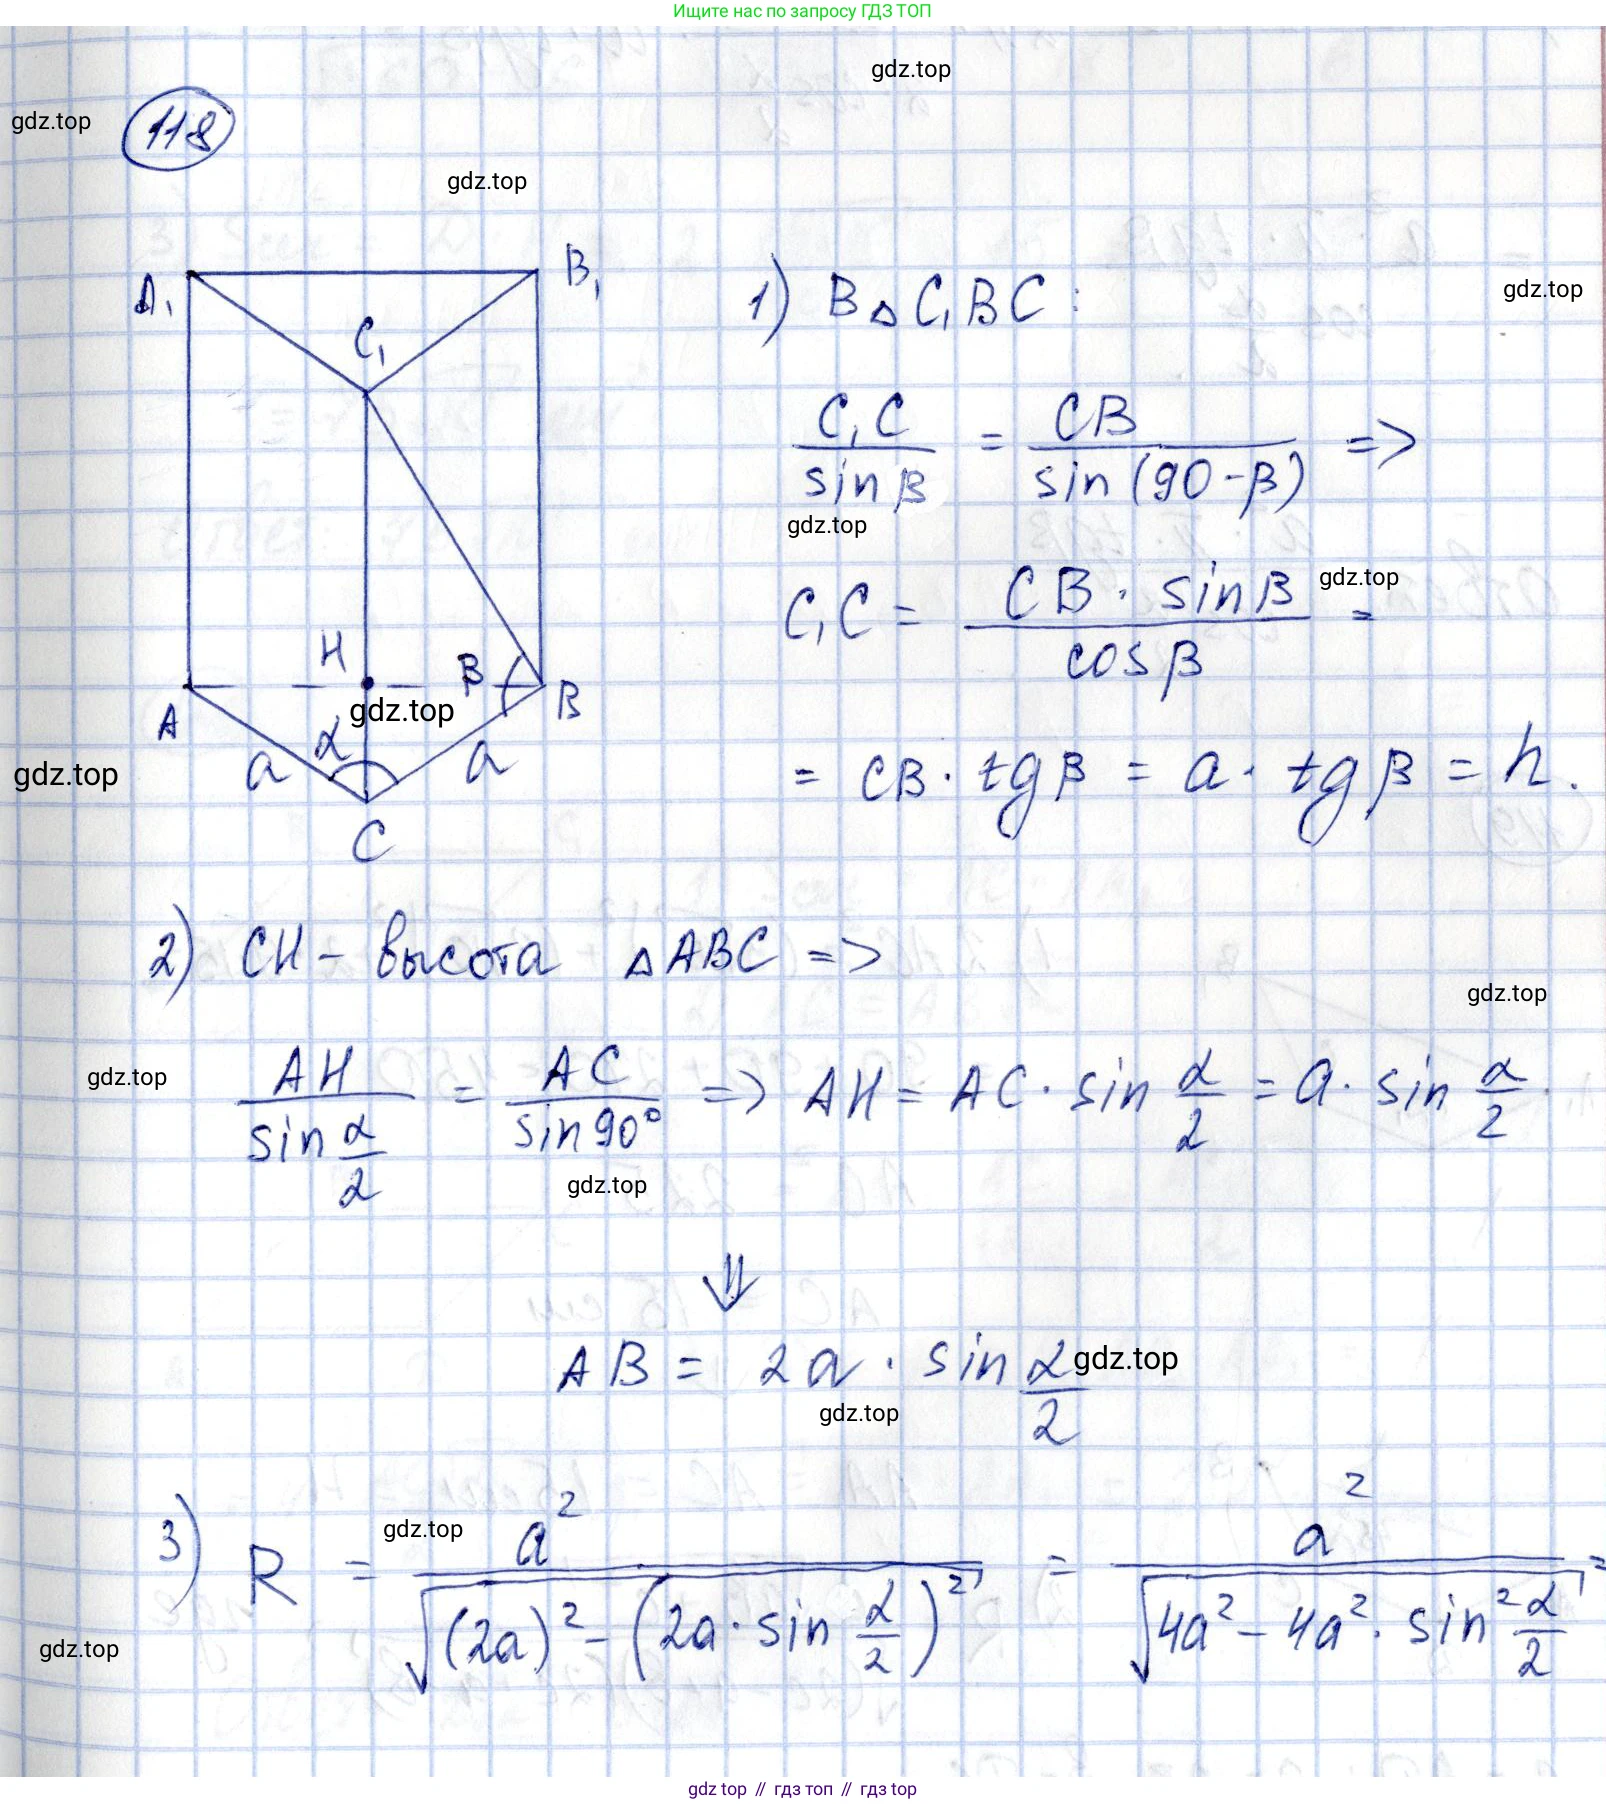 Ищите нас по запросу ГДЗ ТОП
gdz.top
gdz.top
118
gdz.top
A₁
B₁
C₁
1) В △ C₁BC :
gdz.top
C₁C / sin β = CB / sin (90 - β) =>
gdz.top
C₁C = CB · sin β / cos β =
gdz.top
= CB · tg β = a · tg β = h.
H
β
A
B
gdz.top
α
a
a
gdz.top
C
2) CH - высота △ ABC =>
gdz.top
gdz.top
AH / sin α/2 = AC / sin 90° => AH = AC · sin α/2 = a · sin α/2
gdz.top
⇓
AB = 2a · sin α/2
gdz.top
gdz.top
3) R = a² / √(2a)² - (2a · sin α/2)² = a² / √4a² - 4a² · sin² α/2 =
gdz.top
gdz.top
gdz top // гдз топ // гдз top